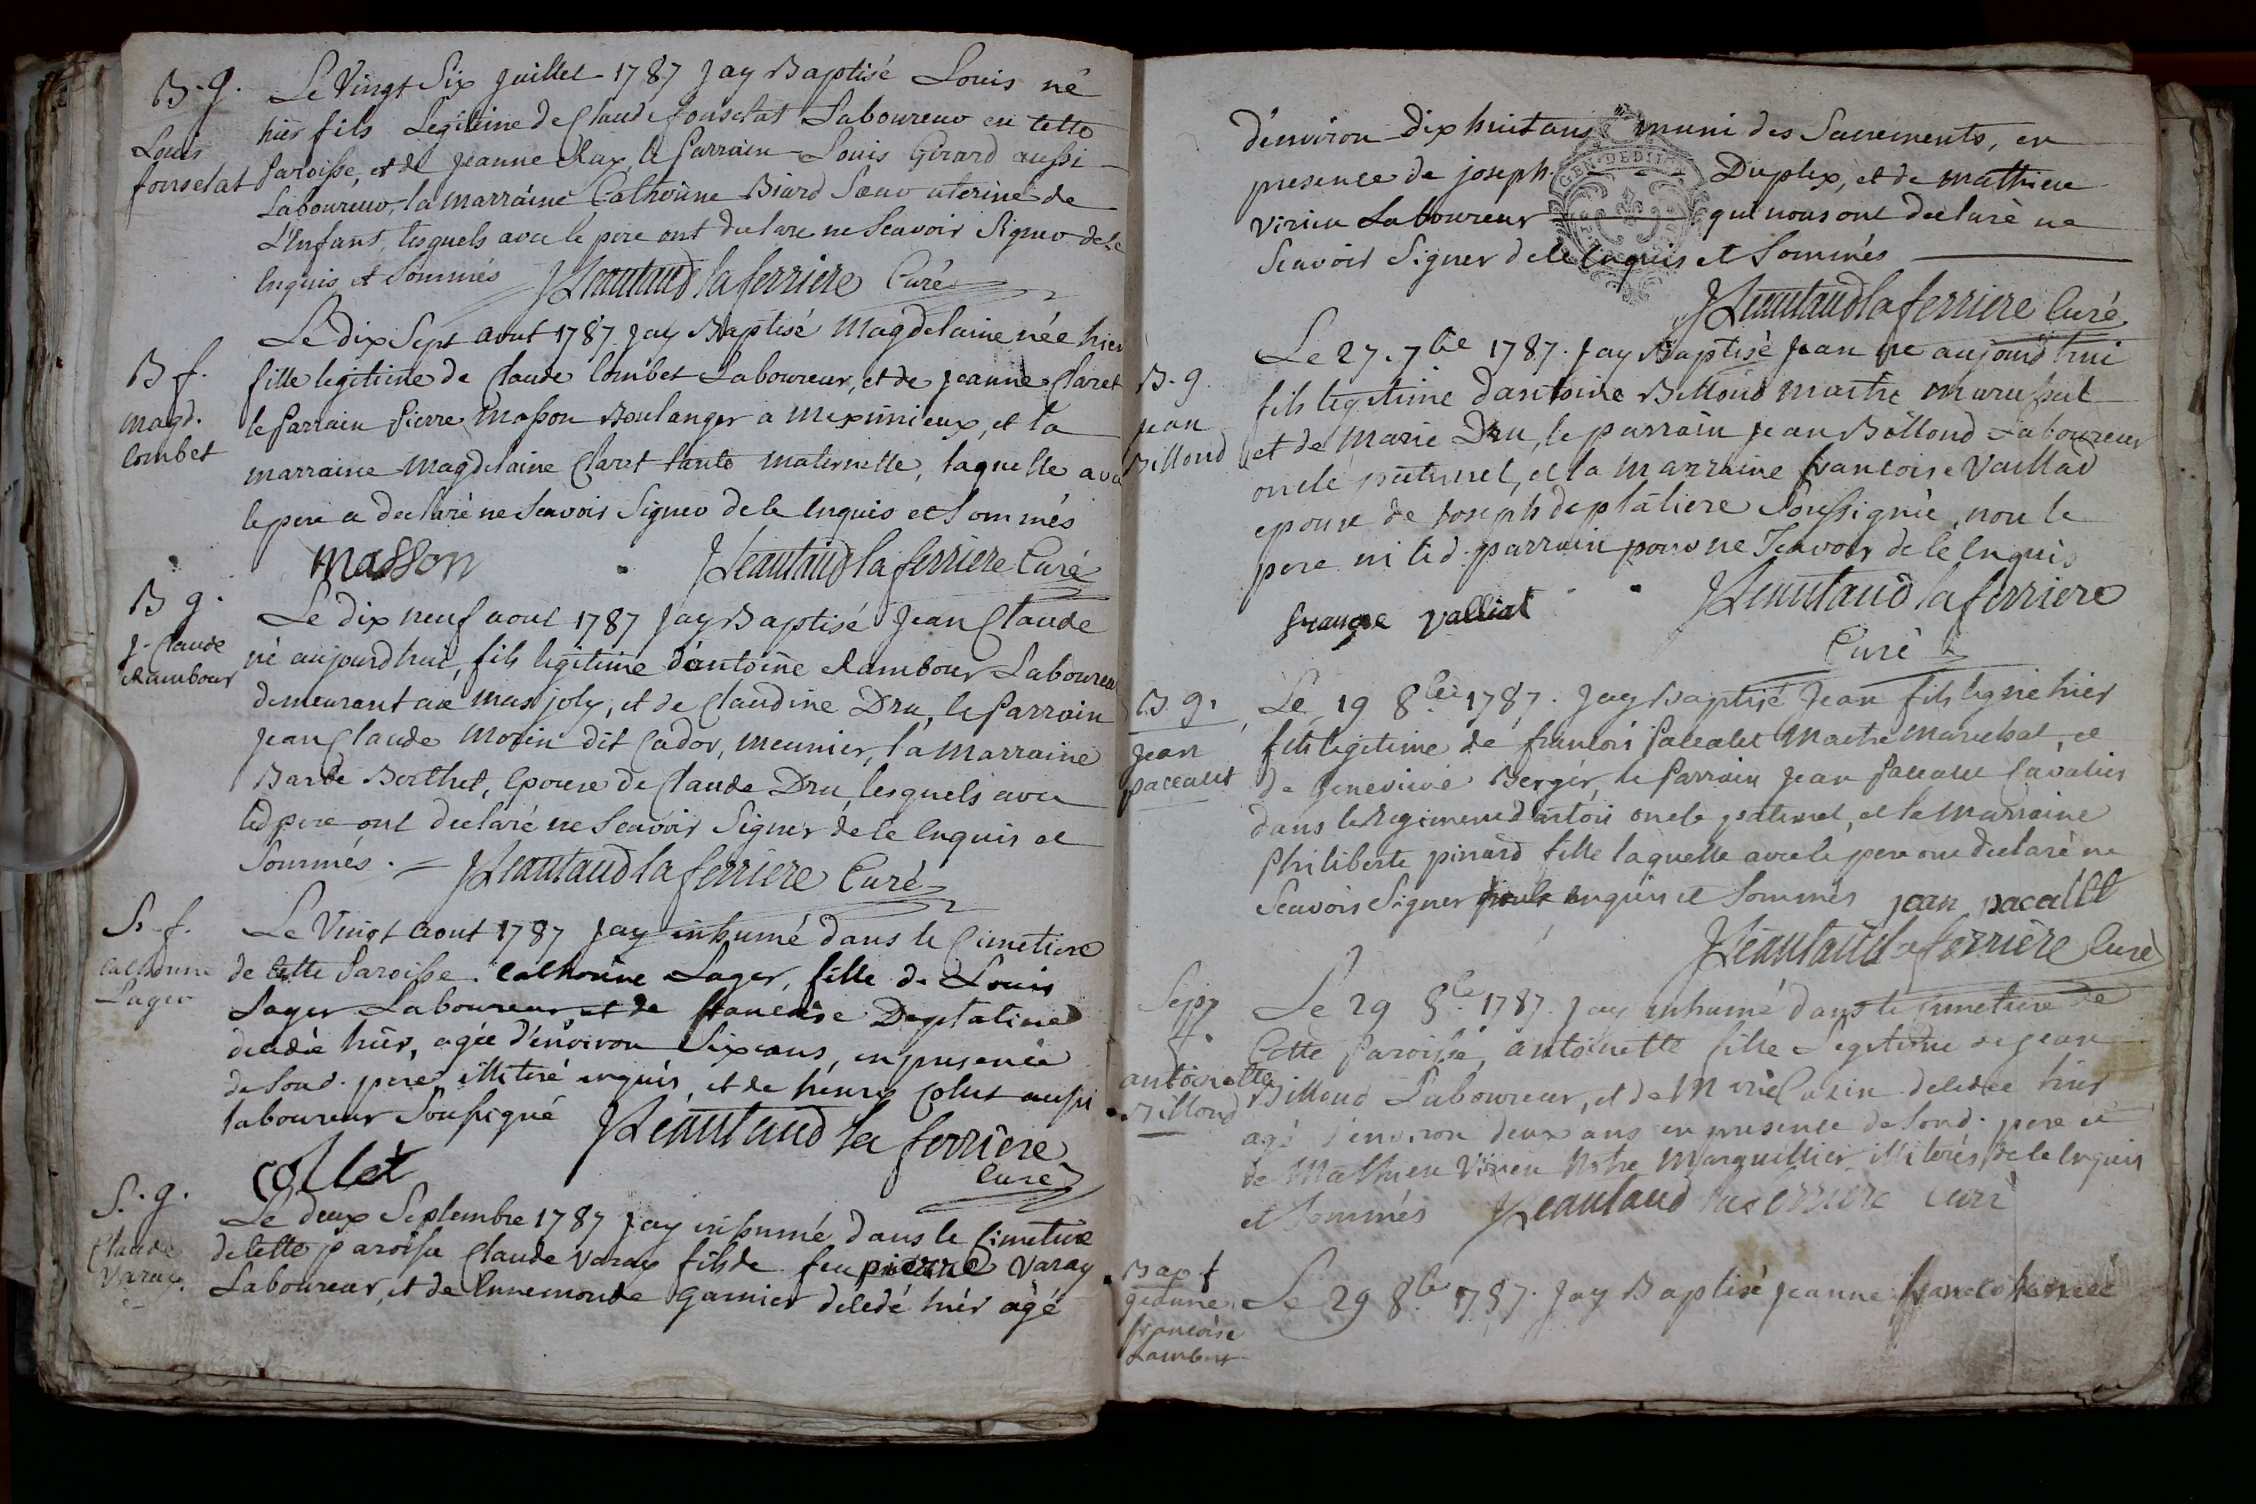 B. g.
Louis
fonselat
Le Vingt Six juillet 1787 jay Baptisé Louis né
hier fils Legitime de Claude fonselat Laboureur en cette
Paroisse, et de jeanne Rax, le Parrain Louis Girard aussi
Laboureur, la marraine Catherine Biard Sœur uterine de
L'Enfant, lesquels avec le pere ont declare ne Scavoir Signer de ce
Enquis et Sommés JLeautaud la ferriere Curé
B f.
magd.
Combet
Le dix Sept aout 1787 jay Baptisé Magdelaine née hier
fille legitime de Claude Combet Laboureur, et de jeanne Claret
le Parrain Pierre Masson Boulanger a Meximieux, et la
marraine Magdelaine Claret tante maternelle, laquelle avec
le pere a declaré ne Scavoir Signer de ce Enquis et Sommés
masson JLeautaud la ferriere Curé
B g.
J. Claude
Rambour
Le dix neuf aout 1787 jay Baptisé Jean Claude
né aujourdhui, fils legitime d'antoine Rambour Laboureur
demeurant au mas joly, et de Claudine Dru, le Parrain
Jean Claude Morin dit Cador, meunier, la Marraine
Barbe Berthet, Epouse de Claude Dru, lesquels avec
led pere ont declaré ne Scavoir Signer de ce Enquis et
Sommés. JLeautaud la ferriere Curé
S. f.
Catherine
Lager
Le Vingt aout 1787 jay inhumé dans le Cimetiere
de cette Paroisse. Catherine Lager, fille de Louis
Lager Laboureur et de francoise Deplatine
decedée hier, agée d'environ Six ans, en presence
de Sond. pere illiteré enquis, et de henry Collet aussi
laboureur Soussigné JLeautaud la ferriere
collet Curé
S. g.
Claude
Varay.
Le deux Septembre 1787 jay inhumé dans le Cimetiere
de cette paroisse Claude Varay fils de feu pierre Varay
Laboureur, et de Ennemonde Garnier decedé hier agé
d'environ dix huit ans muni des Sacrements, en
presence de joseph Duplex, et de Mathieu
Virieu Laboureur qui nous ont declaré ne
Scavoir Signer de ce Enquis et Sommés
JLeautaud la ferriere Curé
B. g
jean
Billoud
Le 27. 7bre 1787. jay Baptisé Jean né aujourd'hui
fils legitime dantoine Billoud maitre marechal
et de Marie Dru, le parrain jean Billoud Laboureur
oncle paternel, et la Marraine francoise Vaillad
epouse de Joseph deplatiere Soussignée, non le
pere ni led. parrain pour ne Scavoir de ce Enquis
franqse valliat JLeautaud la ferriere
Curé
B. g.
Jean
paccalet
Le 19 8bre 1787. jay Baptisé Jean fils leg né hier
fils legitime de francois Paccalet Maitre Marechal, et
de Genevieve Berger, le Parrain Jean Paccalet Cavalier
dans le Regiment dartois oncle paternel, et la Marraine
Philiberte pinard fille laquelle avec le pere ont declaré ne
Scavoir Signer Enquis et Sommés jean pacallet
JLeautaud la ferriere Curé
Sepp
f.
antoinette
Billoud
Le 29 8bre 1787. jay inhumé dans le Cimetiere de
Cette Paroisse, antoinette fille Legitime de jean
Billoud Laboureur, et de Marie Cazin decedée hier
agé d'environ deux ans en presence de Sond. pere et
de Mathieu Virieu Notre Marguillier illiterés de ce Enquis
et Sommés JLeautaud la ferriere Curé
Bap f
jeanne
francoise
Lambert
Le 29 8bre 1787. jay Baptisé jeanne francoise née